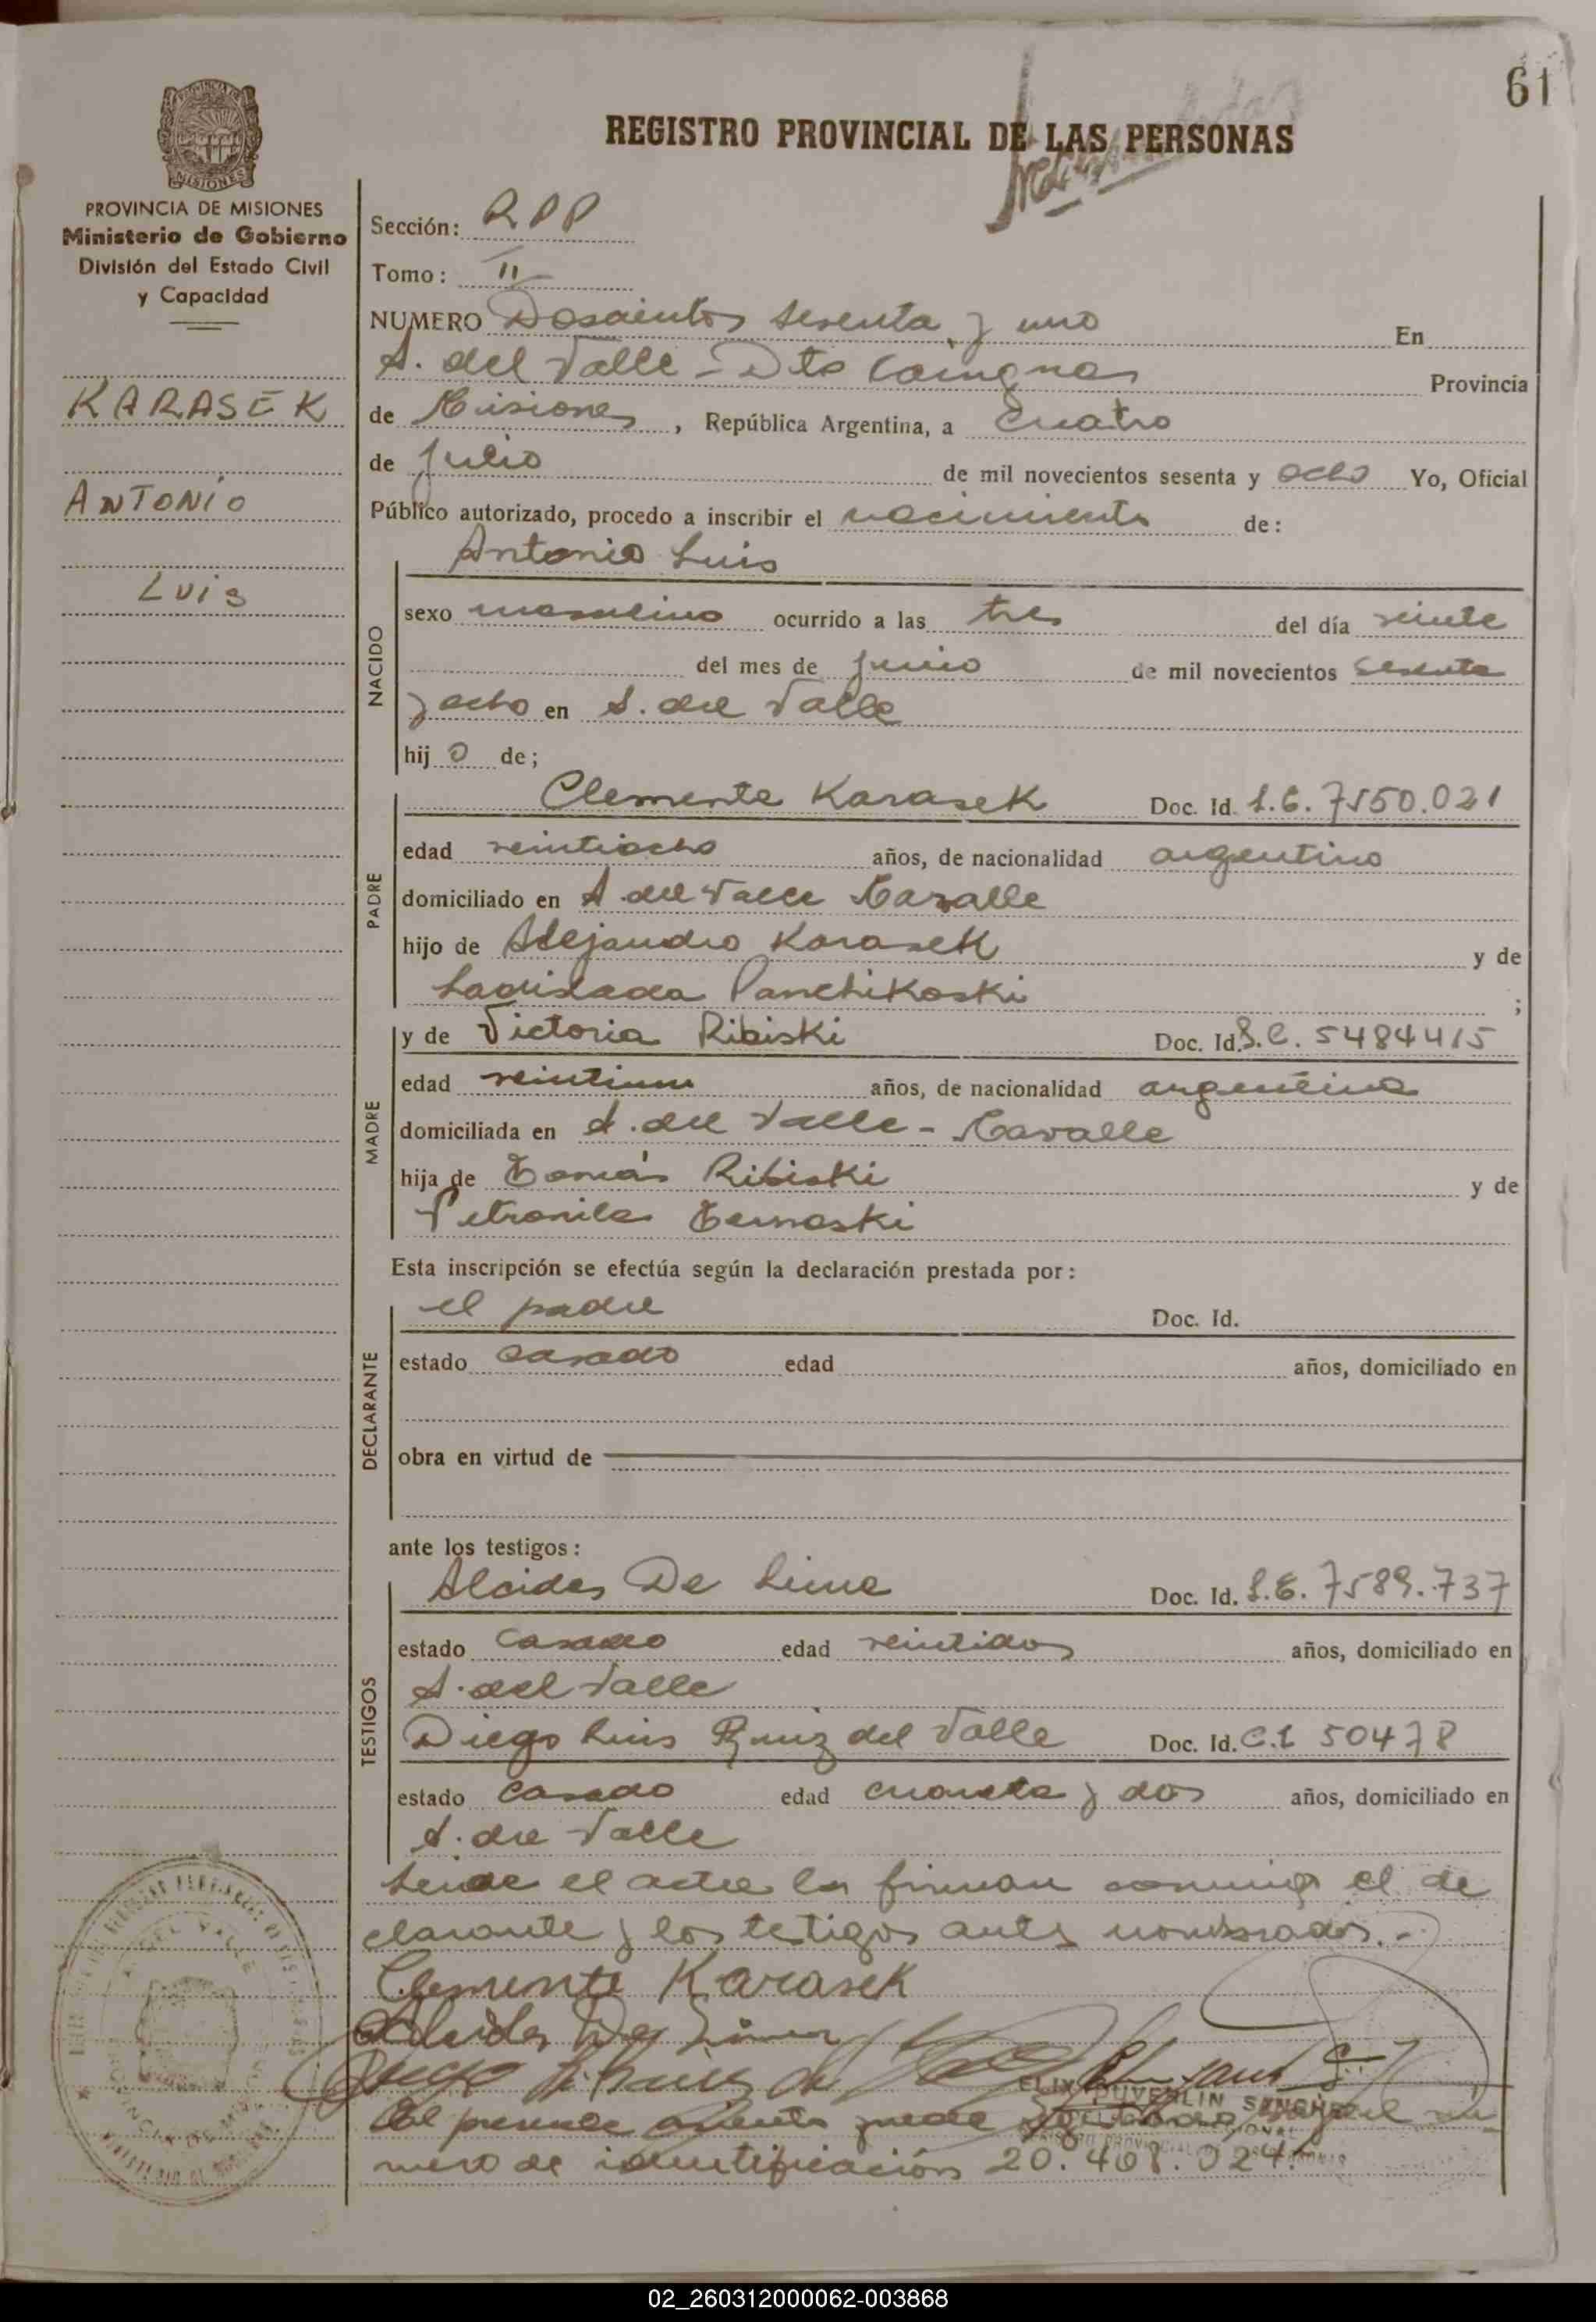 61
REGISTRO PROVINCIAL DE LAS PERSONAS
MISIONES
PROVINCIA DE MISIONES
Ministerio de Gobierno
División del Estado Civil
y Capacidad
KARASEK
ANTONIO
LUIS
Sección: RPP
Tomo: II
NUMERO Doscientos sesenta y uno En
A. del Valle - Dto Cainguas Provincia
de Misiones, República Argentina, a Cuatro
de Julio de mil novecientos sesenta y ocho Yo, Oficial
Público autorizado, procedo a inscribir el nacimiento de:
NACIDO
Antonio Luis
sexo masculino ocurrido a las tres del día veinte
del mes de junio de mil novecientos sesenta
y ocho en A. del Valle
hij o de;
PADRE
Clemente Karasek Doc. Id. L.E. 7550.021
edad veintiocho años, de nacionalidad argentino
domiciliado en A del Valle
hijo de Alejandro Karasek y de
Ladislada Panchikoski ;
MADRE
y de Victoria Ribiski Doc. Id. L.C. 5484415
edad veintiuno años, de nacionalidad argentina
domiciliada en A. del Valle -
hija de Tomás Ribiski y de
Petronila
Esta inscripción se efectúa según la declaración prestada por:
DECLARANTE
el padre Doc. Id.
estado casado edad años, domiciliado en
obra en virtud de
ante los testigos:
TESTIGOS
Alcides De Lima Doc. Id. L.E. 7589.737
estado casado edad veintidos años, domiciliado en
A. del Valle
Diego Luis Ruiz del Valle Doc. Id. C.I 50478
estado casado edad cuarenta y dos años, domiciliado en
A. del Valle
Leida el acta la firman conmigo el de
clarante y los testigos antes nombrados.-
Clemente Karasek
Alcides De Lima
El presente asiento puede nu
mero de identificación 20.408.024.
02_260312000062-003868